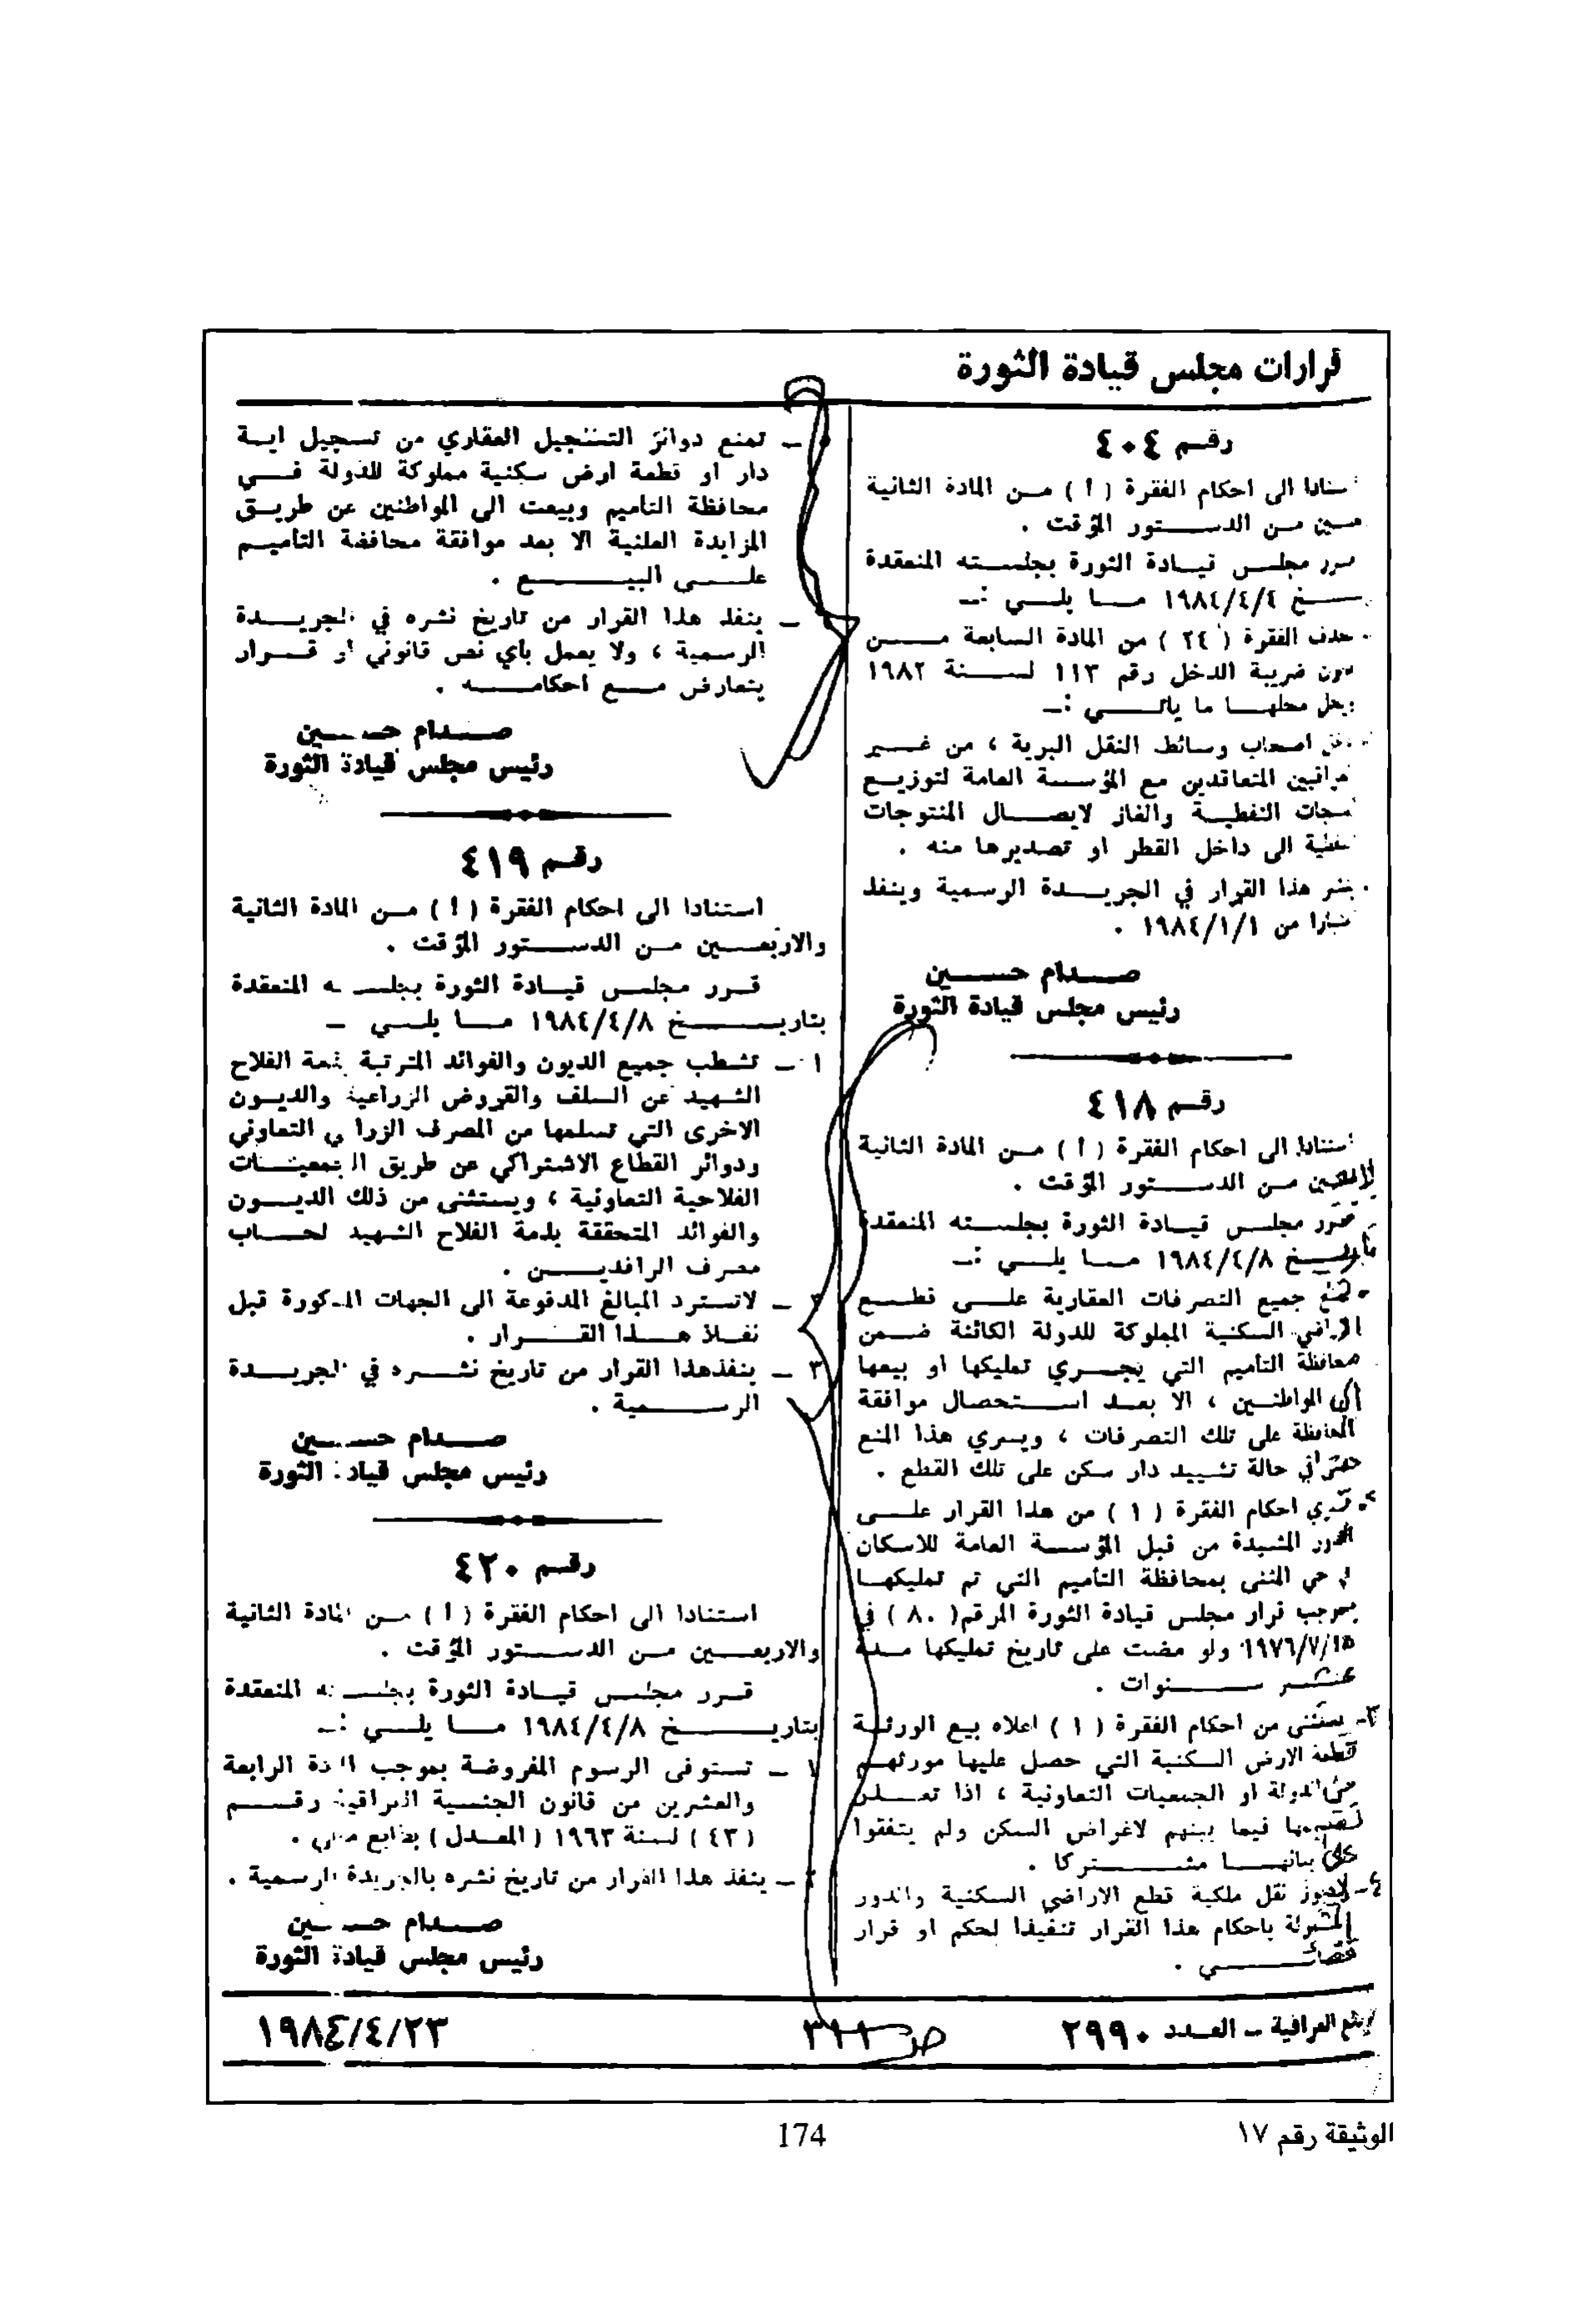 قرارات مجلس قيادة الثورة
رقم ٤٠٤
الى احكام الفقرة ( أ ) من المادة الثانية
من الدستور المؤقت .
مجلس قيادة الثورة بجلسته المنعقدة
١٩٨٤/٤/٤ ما يلي :ـ
الفقرة ( ٢٤ ) من المادة السابعة من
ضريبة الدخل رقم ١١٣ لسنة ١٩٨٢
محلها ما يأتي :ـ
اصحاب وسائط النقل البرية ، من غير
المتعاقدين مع المؤسسة العامة لتوزيع
النفطية والغاز لايصال المنتوجات
الى داخل القطر او تصديرها منه .
هذا القرار في الجريدة الرسمية وينفذ
من ١٩٨٤/١/١ .
صدام حسين
رئيس مجلس قيادة الثورة
رقم ٤١٨
الى احكام الفقرة ( أ ) من المادة الثانية
من الدستور المؤقت .
مجلس قيادة الثورة بجلسته المنعقدة
١٩٨٤/٤/٨ ما يلي :ـ
جميع التصرفات العقارية على قطع
السكنية المملوكة للدولة الكائنة ضمن
محافظة التأميم التي يجري تمليكها او بيعها
الى المواطنين ، الا بعد استحصال موافقة
المحافظة على تلك التصرفات ، ويسري هذا المنع
في حالة تشييد دار سكن على تلك القطع .
احكام الفقرة ( ١ ) من هذا القرار على
المشيدة من قبل المؤسسة العامة للاسكان
حي المثنى بمحافظة التأميم التي تم تمليكها
بموجب قرار مجلس قيادة الثورة المرقم( ٨٠ ) في
١٩٧٦/٧/١٥ ولو مضت على تاريخ تمليكها مدة
عشر سنوات .
٣ـ يستثنى من احكام الفقرة ( ١ ) اعلاه بيع الورثة
قطعة الارض السكنية التي حصل عليها مورثهم
الدولة او الجمعيات التعاونية ، اذا تعذر
فيما بينهم لاغراض السكن ولم يتفقوا
على بنائها مشتركا .
٤ـ نقل ملكية قطع الاراضي السكنية والدور
المشمولة باحكام هذا القرار تنفيذا لحكم او قرار
قضائي .
ـ تمنع دوائر التسجيل العقاري من تسجيل اية
دار او قطعة ارض سكنية مملوكة للدولة في
محافظة التاميم وبيعت الى المواطنين عن طريق
المزايدة العلنية الا بعد موافقة محافظة التاميم
على البيع .
ـ ينفذ هذا القرار من تاريخ نشره في الجريدة
الرسمية ، ولا يعمل بأي نص قانوني او قرار
يتعارض مع احكامه .
صدام حسين
رئيس مجلس قيادة الثورة
رقم ٤١٩
استنادا الى احكام الفقرة ( أ ) من المادة الثانية
والاربعين من الدستور المؤقت .
قرر مجلس قيادة الثورة بجلسته المنعقدة
بتاريخ ١٩٨٤/٤/٨ ما يلي ـ
١ ـ تشطب جميع الديون والفوائد المترتبة بذمة الفلاح
الشهيد عن السلف والقروض الزراعية والديون
الاخرى التي تسلمها من المصرف الزراعي التعاوني
ودوائر القطاع الاشتراكي عن طريق الجمعيات
الفلاحية التعاونية ، ويستثنى من ذلك الديون
والفوائد المتحققة بذمة الفلاح الشهيد لحساب
مصرف الرافدين .
٢ ـ لاتسترد المبالغ المدفوعة الى الجهات المذكورة قبل
نفاذ هذا القرار .
٣ ـ ينفذهذا القرار من تاريخ نشره في الجريدة
الرسمية .
صدام حسين
رئيس مجلس قيادة الثورة
رقم ٤٢٠
استنادا الى احكام الفقرة ( أ ) من المادة الثانية
والاربعين من الدستور المؤقت .
قرر مجلس قيادة الثورة بجلسته المنعقدة
بتاريخ ١٩٨٤/٤/٨ ما يلي :ـ
١ ـ تستوفى الرسوم المفروضة بموجب المادة الرابعة
والعشرين من قانون الجنسية العراقية رقم
( ٤٣ ) لسنة ١٩٦٣ ( المعدل ) بطابع مالي .
٢ ـ ينفذ هذا القرار من تاريخ نشره بالجريدة الرسمية .
صدام حسين
رئيس مجلس قيادة الثورة
العراقية ـ العدد ٢٩٩٠
ص
١٩٨٤/٤/٢٣
الوثيقة رقم ١٧
174